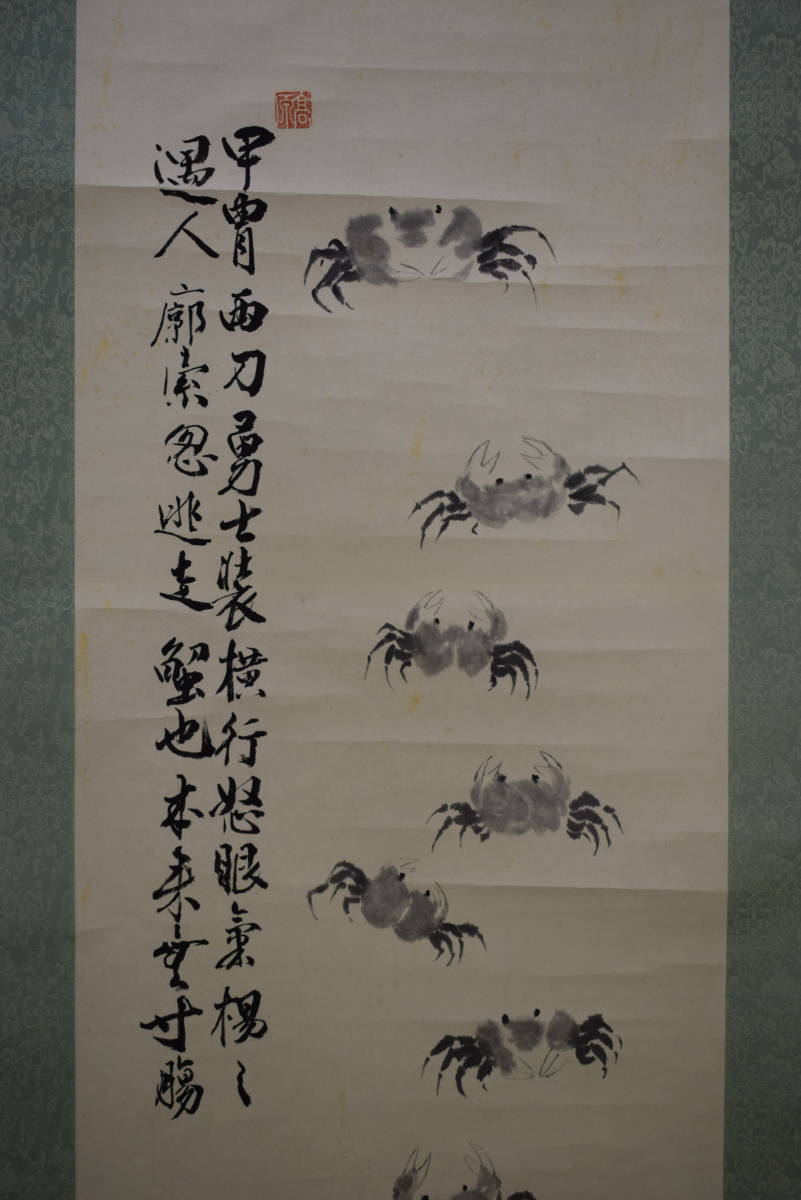 高原
甲冑両刀勇士装横行怒眼氣楊〻
遇人廓索忽逃走蟹也本来無寸腸